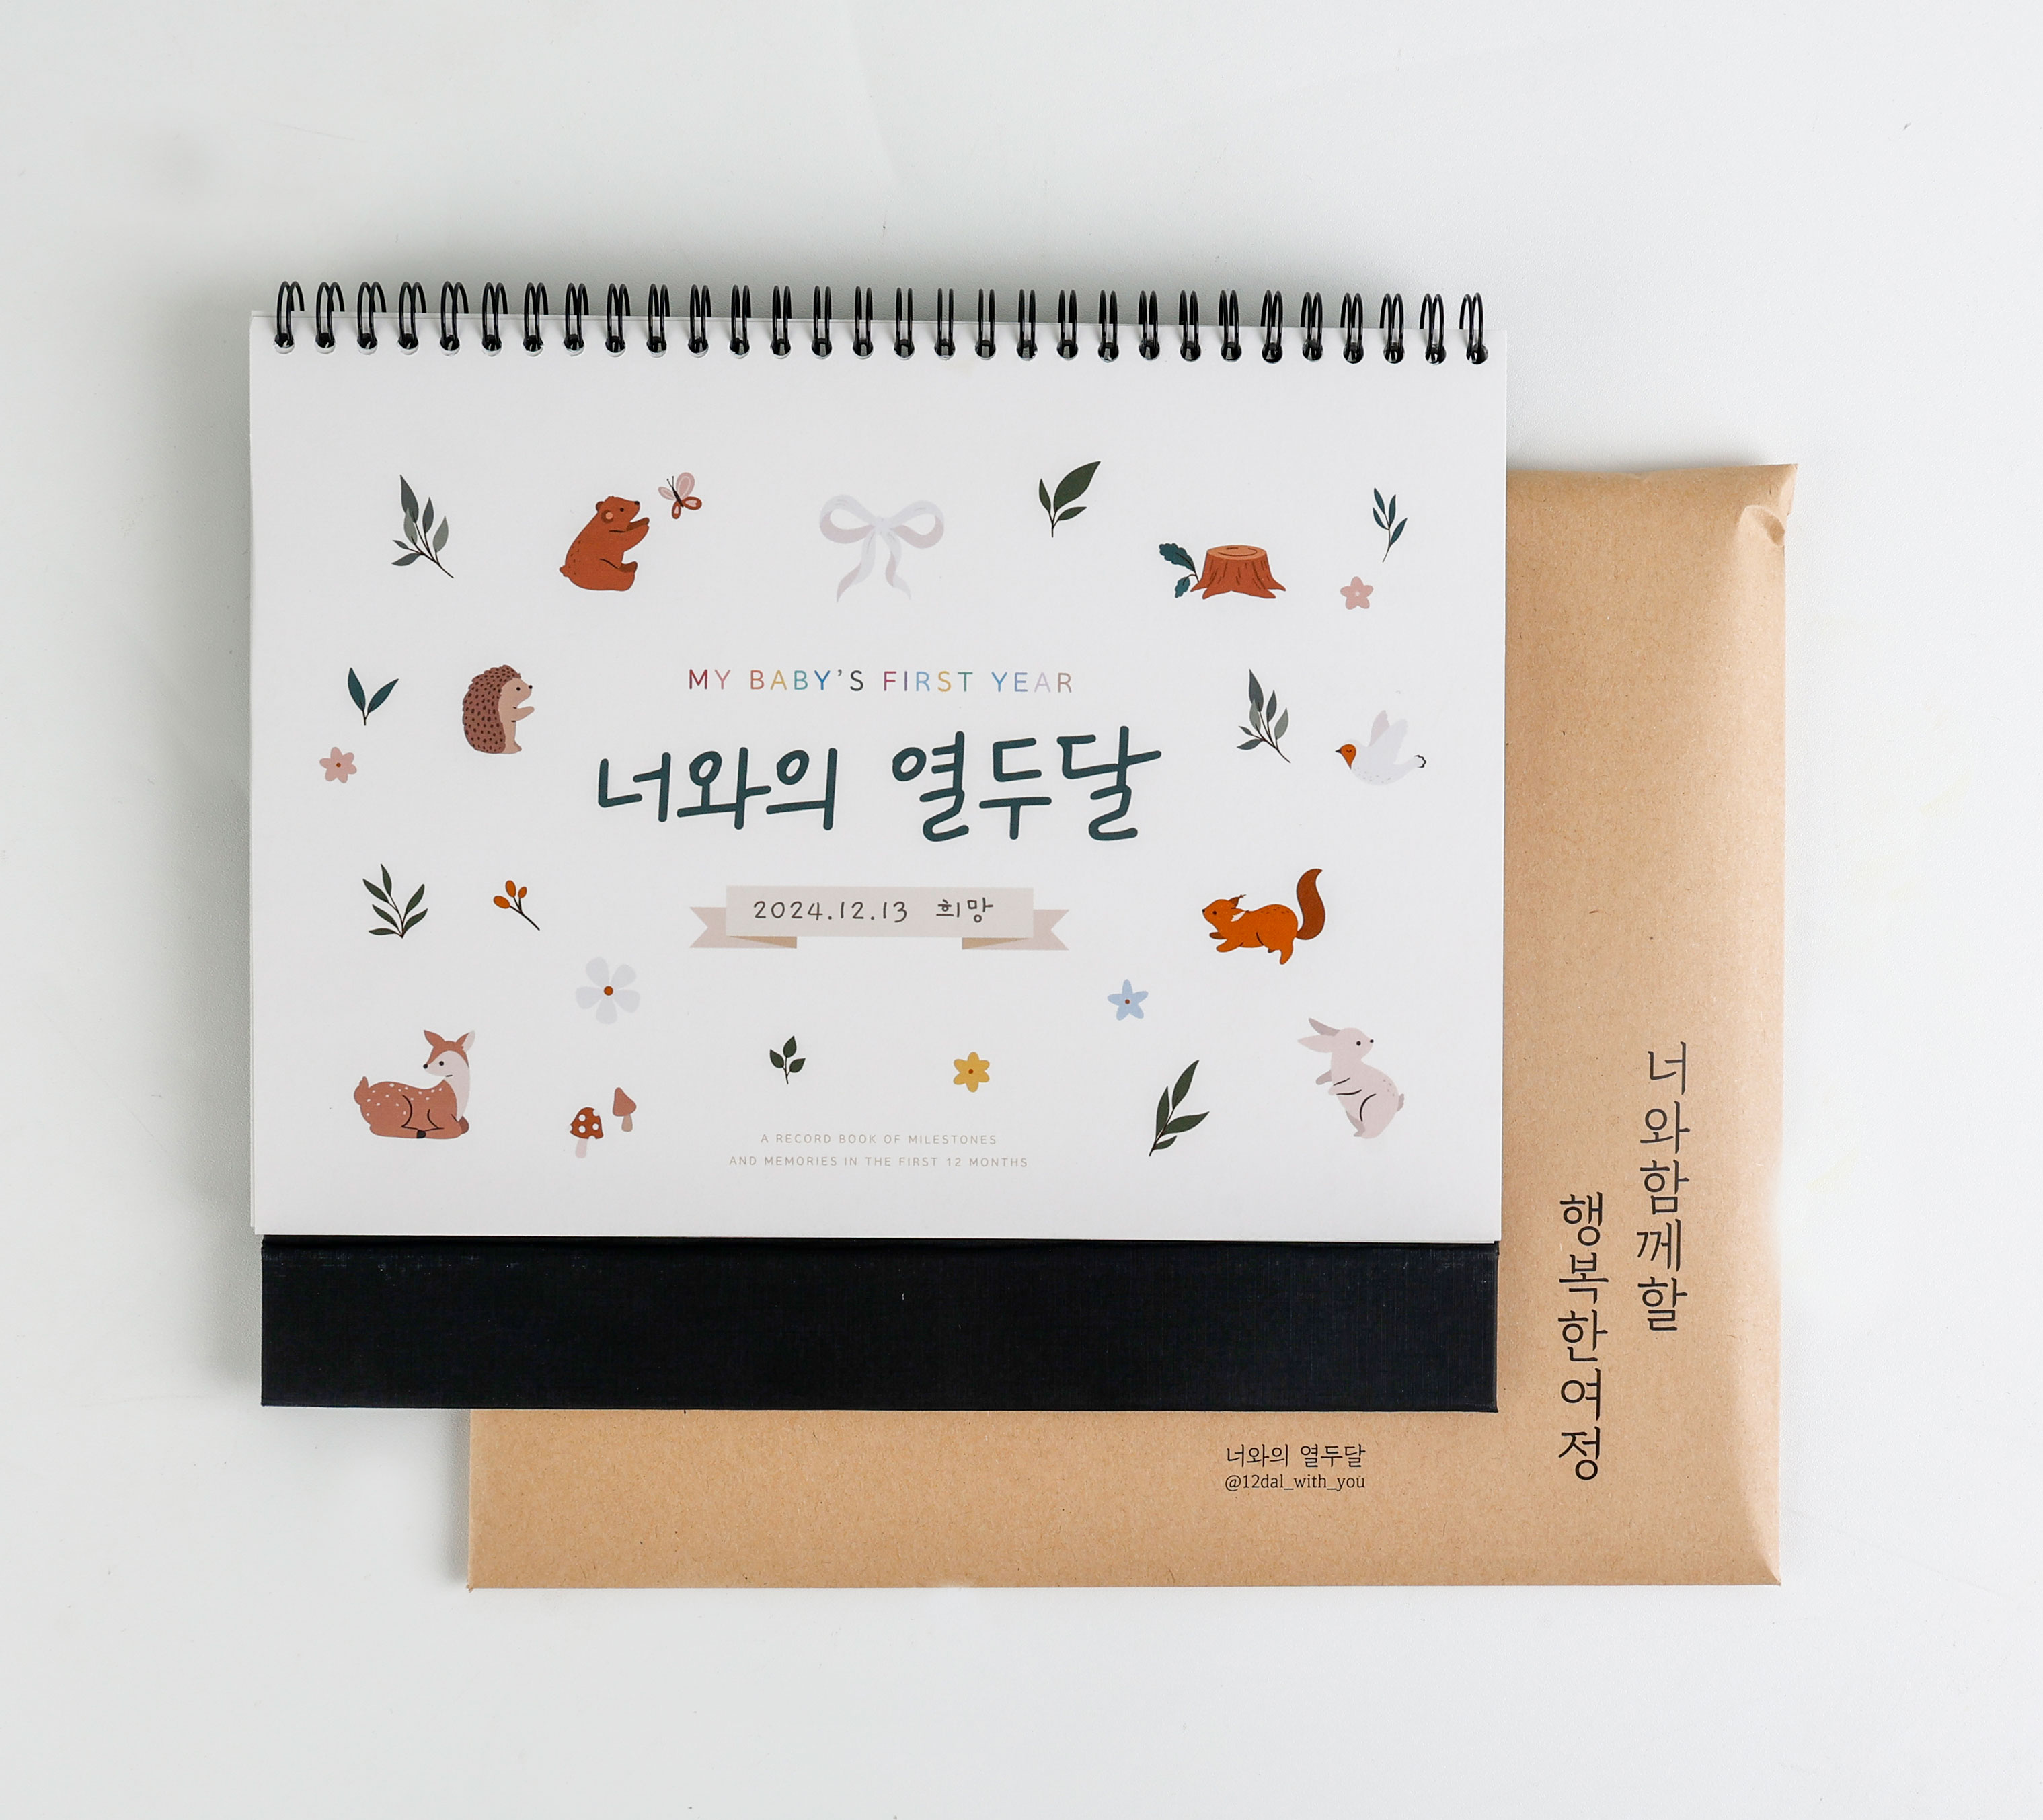 MY BABY'S FIRST YEAR
너와의 열두달
2024.12.13 희망
A RECORD BOOK OF MILESTONES
AND MEMORIES IN THE FIRST 12 MONTHS
너와함께할
행복한여정
너와의 열두달
@12dal_with_you